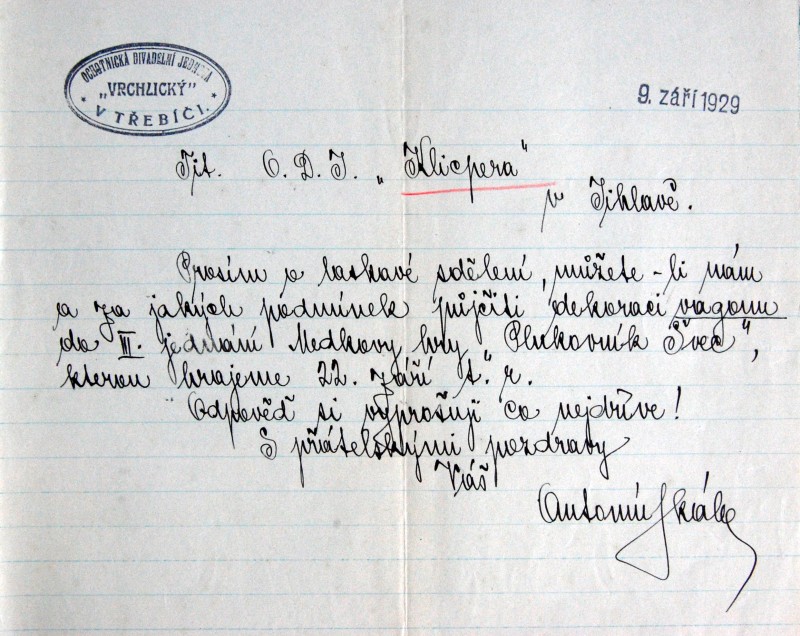 OCHOTNICKÁ DIVADELNÍ JEDNOTA
„VRCHLICKÝ"
V TŘEBÍČI.
9. září 1929
Tit. O. D. J. „Klicpera"
v Jihlavě.
Prosím o laskavé sdělení, můžete-li nám
a za jakých podmínek půjčiti dekoraci vagonu
do III. jednání Medkovy hry „Plukovník Švec",
kterou hrajeme 22. září t. r.
Odpověď si vyprošuji co nejdříve!
S přátelskými pozdravy
Váš
Antonín